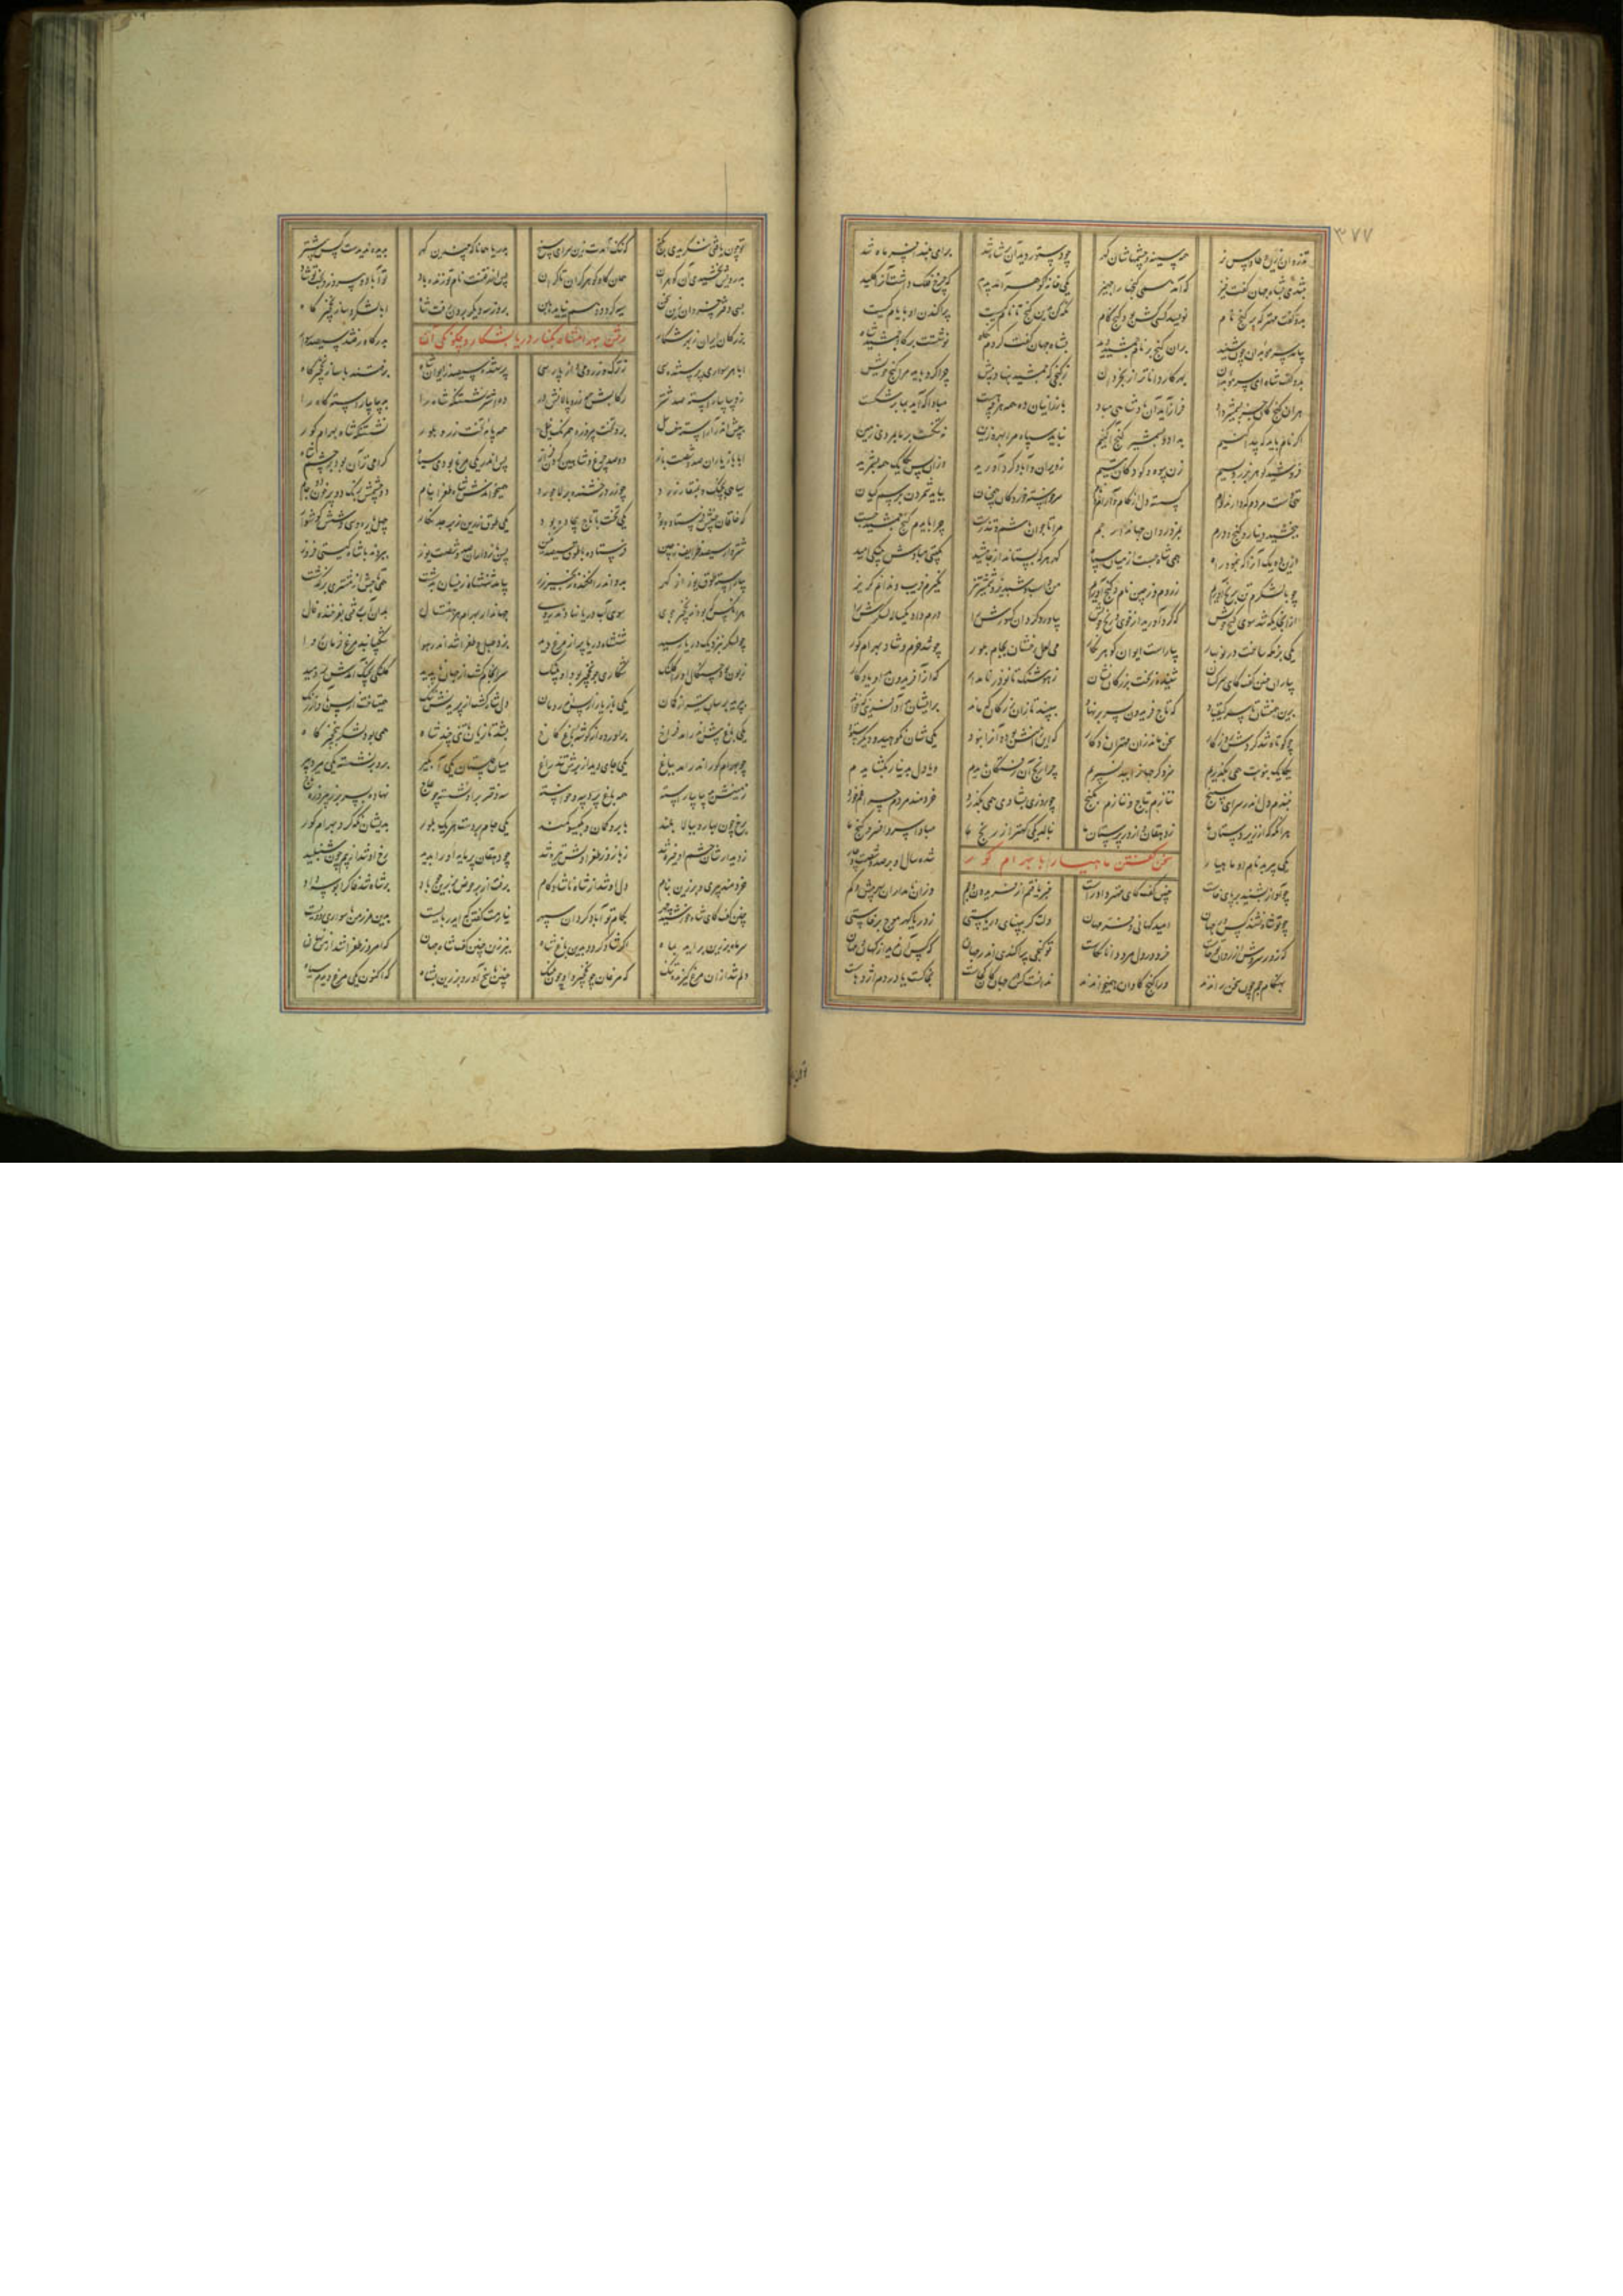 ۳۷۷
تذروان زرین و طاوس زر همه سینه و چشمهاشان گهر چو دستور دید آن بر شاه شد برای بلند افسر ماه شد
بتندی بشاه جهان گفت خیز که آمد همی گنجها را جهیز یکی خانه گوهر آمد پدید که چرخ فلک داشت آنرا کلید
بدو گفت بنگر که بر گنج نام نویسد کسی کش بود گنج کام نگه کن بدین گنج تا نام کیست پراکندن او بایام کیست
بیامد سر موبدان چون شنید بران گنج بر نام جمشید دید بشاه جهان گفت کردم نگاه نوشتست بر گاو جمشید شاه
بدو گفت شاه ای سر موبدان بهر کار داناتر از بخردان ز گنجی که جمشید بنهاد پیش چرا کرد باید مرا گنج خویش
هران گنج کان جز بشمشیر و داد فراز آید آن پادشاهی مباد بارزانیان ده همه هرچه هست مبادا که آید بما بر شکست
اگر نام باید که پیدا کنیم بداد و بشمشیر گنج آگنیم نباید سپاه مرا بهره زین نه تنگست بر ما بر روی زمین
فروشید گوهر بزر و بسیم زن بیوه و کودکان یتیم ز ویران و آباد گرد آورید وزان پس یکایک همه بشمرید
تهی دست مردم که دارند نام گسسته دل از کام و آرام
ببخشید دینار و گنج و درم بمزد روان جهاندار جم مرا تا جوان باشم و تندرست چرا بایدم گنج جمشید جست
ازین ده یک آنرا که بنمود راه همی شاه جست از میان سپاه بگیتی مبادش به نیکی امید
چو با لشکرم تن برنج آورم ز روم و ز چین نام و گنج آورم من و اسب شبدیز و شمشیر تیز نگیرم فریب و ندانم گریز
ازانجایگه شد سوی گنج خویش که گرد آورید از خوی و رنج خویش بیاورد گردان کشورش را درم داد یکساله لشکرش را
یکی بزمگه ساخت در نوبهار بیاراست ایوان گوهر نگار می لعل رخشان بجام بلور چو شد خرم و شاد بهرام گور
بیاران چنین گفت کای سرکشان شنیده ز تخت بزرگی نشان ز هوشنگ تا نوذر نامدار کو از آفریدون بد او یادگار
برین همنشان تا سر کیقباد که تاج فریدون بسر بر نهاد ببینید تا زان بزرگان که ماند برایشان بجز آفرین کس نخواند
چو کوتاه شد گردش روزگار سخن ماند زان مهتران یادگار که این را منش بود و آنرا نبود یکی شان نکوهید و دیگر ستود
یکایک بنوبت همی بگذریم سزد گر جهانرا ببد نسپریم چرا رنج آن رفتگان بریم و یا دل بدینار
نبندم دل اندر سرای سپنج ننازم بتاج و نتازم بگنج چو روزی بشادی همی بگذرد خردمند مردم چرا غم خورد
هر آنگه که از زیردستان ما ز دهقان و از در پرستان ما بنالد یکی کهتر از رنج ما مبادا سر و افسر و گنج ما
یکی پیر بد نام او ماهیار سخن گفتن ماهیار با بهرام گور شده سال او بر صد و شصت و چار
چو آواز بشنید بر پای خاست چنین گفت کای مهتر داد و راست خبر یافتم از فریدون و جم وزان نامداران هر بیش و کم
چو تو شاه ننشست کس در جهان امید کهانی و پشت مهان دلت گر بپهنای دریاستی ز دریا گهر موج برخاستی
که زور سروش از روان تو خاست خرد در دل مرد دانا بکاست تو گنجی پراکندی اندر جهان که کس آن ندید از کهان و مهان
بهنگام جم چون سخن راندند ورا گنج گاوان همیخواندند ندانست کس در جهان کان کجاست بخاکست یا در دم اژدهاست
تو چون یافتی ننگریدی بگنج که ننگ آمدت زین سرای سپنج بدریا همانا که چندین گهر بدیده ندیدست کس بیشتر
بدرویش بخشیدی آن گوهران همان گاو گوهر کران تا کران پس از رفتنت نام تو زنده باد تو آباد و پیروز و بختت شاد
بسی دفتر خسروان زین سخن سیه گردد و هم نیاید به بن بروز سدیگر برون رفت شاه ابا لشکر و ساز نخچیرگاه
بزرگان ایران ز بهر شکار رفتن بهرامشاه بکنار دریا بشکار و چگونگی آن بدرگاه رفتند سیصد سوار
ابا هر سواری پرستنده سی ز ترک و ز رومی و از پارسی پرستنده سیصد ز ایوان شاه برفتند با ساز نخچیرگاه
ز دیبا بیاراسته صد شتر رکابش همه زر و پالانش در ده اشتر نشستنگه شاه را بدیبا بیاراسته گاه را
به پیش اندر آراسته هفت پیل برو تخت پیروزه همرنگ نیل همه پایه تخت زر و بلور نشستنگه شاه بهرام گور
ابا بازداران صد و شصت باز دو صد چرغ و شاهین گردن فراز پس اندر یکی مرغ بودی سیاه گرامی تر آن بود بر چشم شاه
سیاهی بچنگ و بمنقار زرد چو زر درخشنده بر لاجورد همیخواندش شاه طغرل بنام دو چشمش برنگ دو پر خون جام
که خاقان چینش فرستاده بود یکی تخت با تاج بیجاده بود یکی طوق زرین زبرجد نگار چهل یاره و سی و شش گوشوار
شتروار سیصد طرایف ز چین فرستاد و یاقوت سیصد نگین پس بازداران صد و شصت یوز ببردند با شاه گیتی فروز
بیاراسته طوق یوز از گهر بدو اندر افکنده زنجیر زر بیامد شهنشاه زینسان بدشت همی تاجش از مشتری برگذشت
هر آنکس که بودند نخچیر جوی سوی آب دریا نهادند روی جهاندار بهرام هر هفت سال بدان آب رفتی بفرخنده فال
چو لشکر بنزدیک دریا رسید شهنشاه دریا پر از مرغ دید بزد طبل و طغرل شد اندر هوا شکیبا نبد مرغ فرمان روا
زبون بود چنگال او را کلنگ شکاری چو نخچیر بود او پلنگ سرانجام گشت از جهان ناپدید کلنگی بچنگ آمدش بر دمید
بپرید برسان تیر از کمان یکی بازدار از پس او دمان دل شاه گشت از پریدنش تنگ همی تاخت از پس بآواز زنگ
یکی باغ پیش اندر آمد فراخ برآورده از گوشه باغ کاخ بشد تازیان با تنی چند شاه همی بود لشکر بنخچیرگاه
چو بهرام گور اندر آمد بباغ یکی جای دید از برش تند راغ میان گلستان یکی آبگیر برو بر نشسته یکی مرد پیر
زمینش بدیبا بیاراسته همه باغ پر بنده و خواسته سه دختر بر او نشسته چو عاج نهاده بسر بر ز پیروزه تاج
برخ چون بهار و ببالا بلند بابرو کمان و بگیسو کمند یکی جام بر دست هر یک بلور بدیشان نگه کرد بهرام گور
ز دیدارشان چشم او خیره شد ز باز و ز طغرل دلش تیره شد چو دهقان پرمایه او را بدید رخ او شد از بیم چون شنبلید
خردمند پیری و برزین بنام دل او شد از شاه ناشادکام برفت از بر حوض برزین چو باد بر شاه شد خاک را بوسه داد
چنین گفت کای شاه خورشید چهر بکام تو آباد گردان سپهر نیارمت گفتن که ایدر بایست بدین مرز من با سواری دویست
سر ماه برزین برآید بماه اگر شاد گردد بدین باغ شاه ببرزین چنین گفت شاه جهان که امروز طغرل شد از من نهان
دلم شد ازان مرغ گیرنده تنگ که مرغان چو نخچیر و او چون پلنگ چنین پاسخ آورد برزین بشاه که اکنون یکی مرغ دیدم سیاه